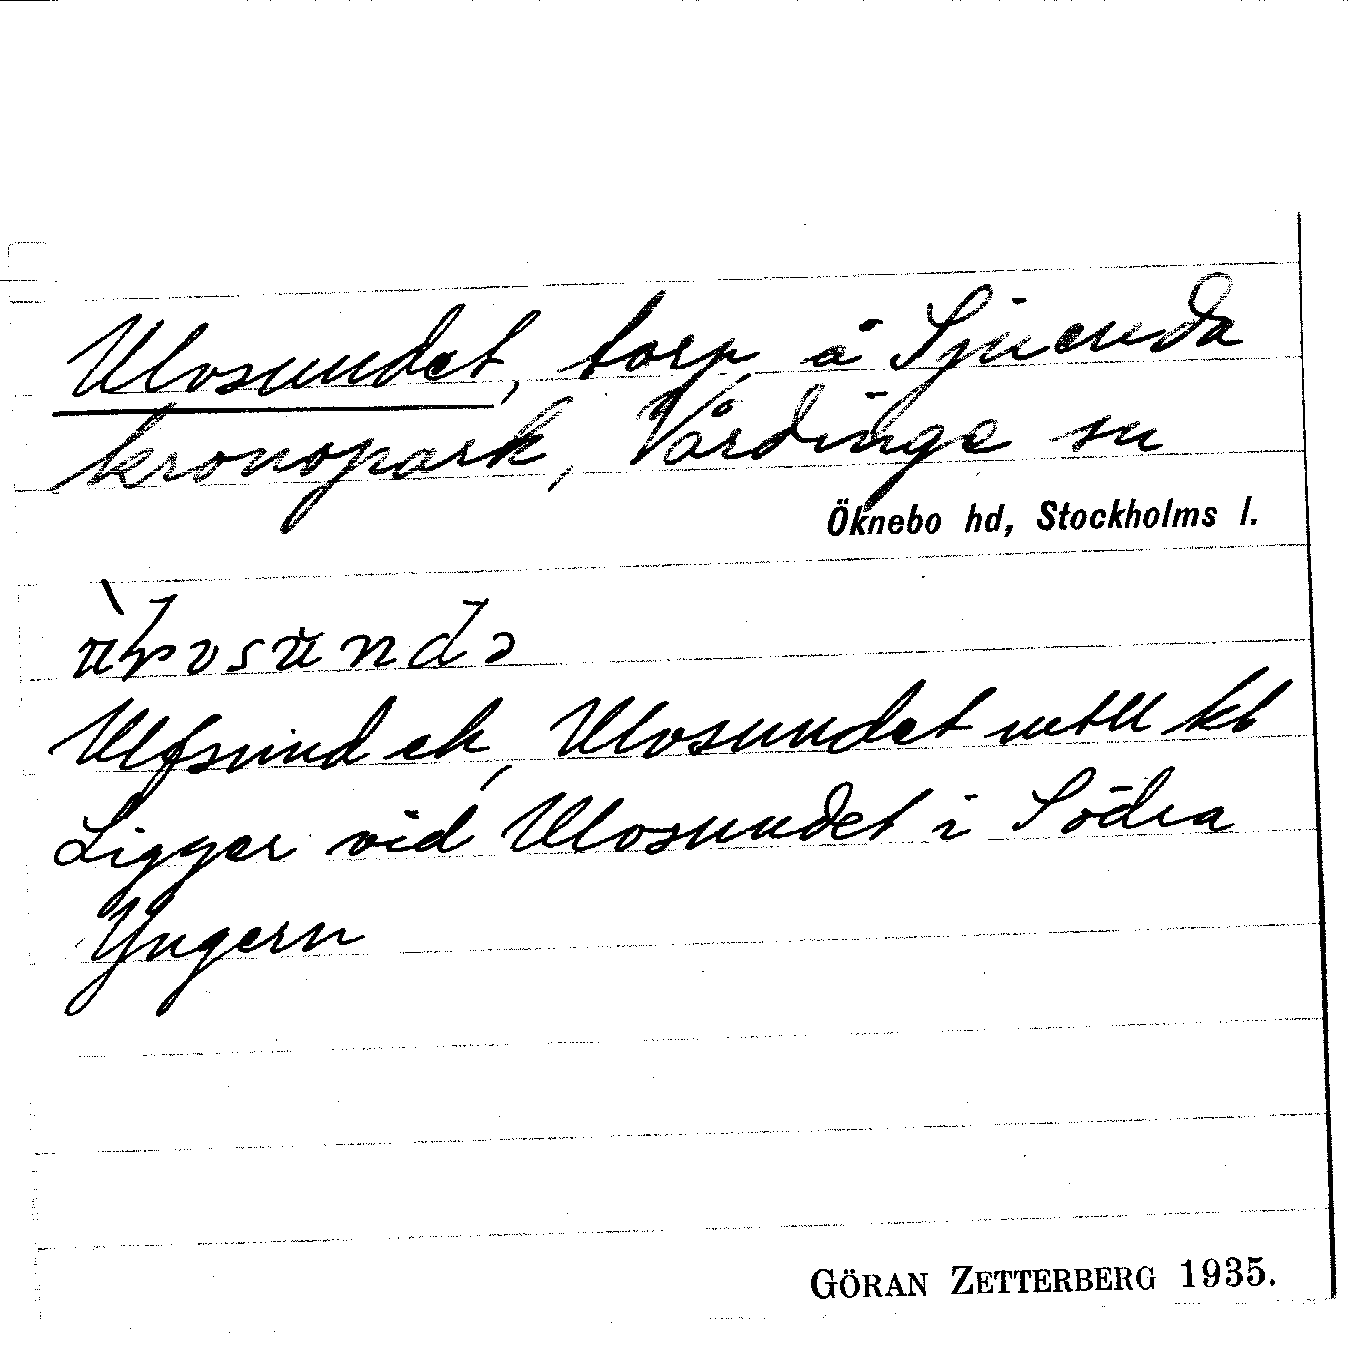 Ulvsundet, torp å Sjuenda
kronopark, Vårdinge sn
Öknebo hd, Stockholms l.
Ulfsund ek, Ulvsundet uttll kb
Ligger vid Ulvsundet i Södra
Yngern
GÖRAN ZETTERBERG 1935.